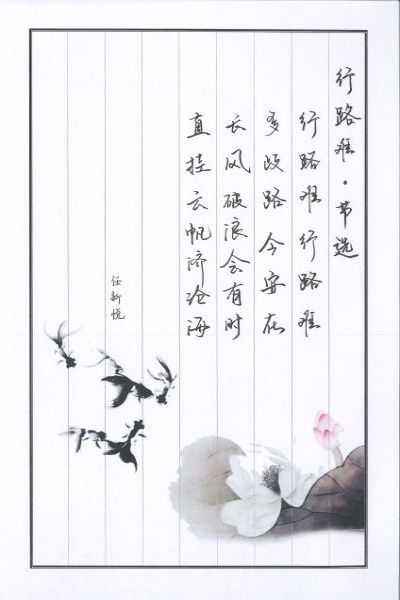 行路难·节选
行路难行路难
多歧路今安在
长风破浪会有时
直挂云帆济沧海
任新悦